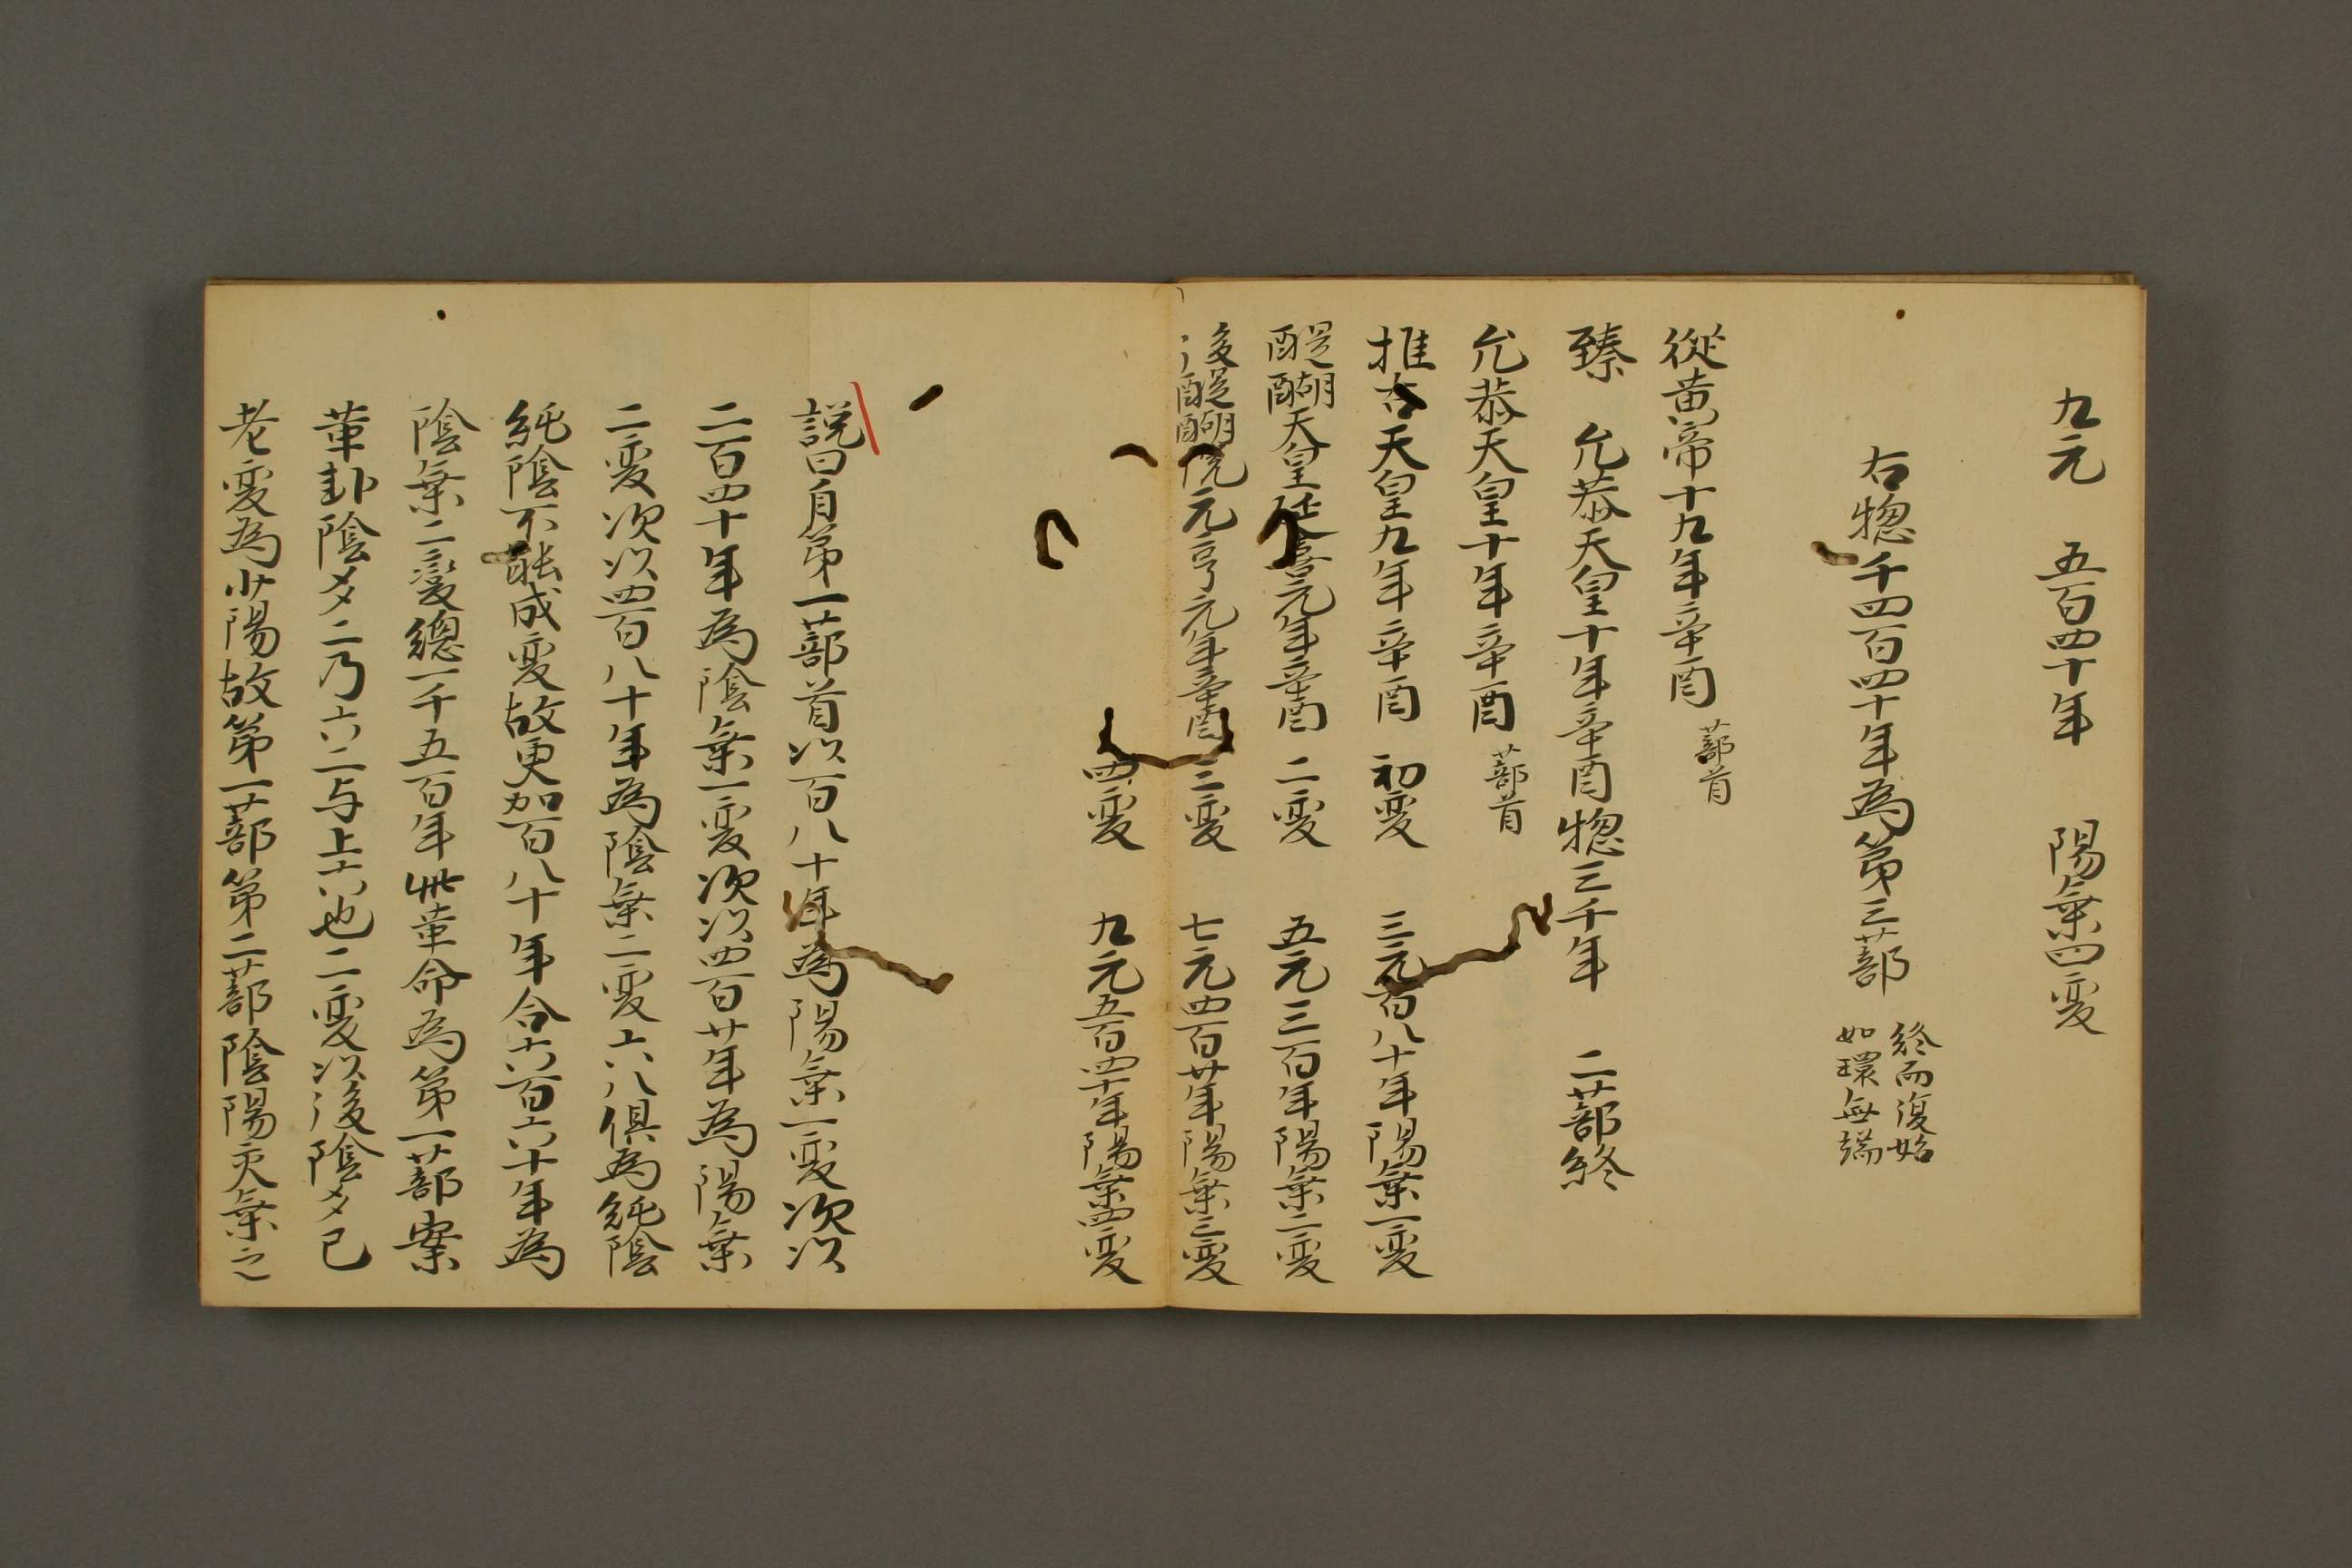 九元　五百四十年　陽乗四変
右惣千四百四十年為第三蔀　終而復始
如環無端
從黄帝十九年辛酉　蔀首
臻　允恭天皇十年辛酉惣三千年　二蔀終
允恭天皇十年辛酉　蔀首
推古天皇九年辛酉　初変　三元百八十年陽乗一変
醍醐天皇延喜元年辛酉　二変　五元三百年陽乗二変
後醍醐院元亨元年辛酉　三変　七元四百廿年陽乗三変
四変　九元五百四十年陽乗四変
説曰自第一蔀首以百八十年為陽乗一変次以
二百四十年為陰乗一変次以四百廿年為陽乗
二変次以四百八十年為陰乗二変六八俱為純陰
純陰不能成変故更加百八十年合六百六十年為
陰乗二變總一千五百年此革命為第一蔀案
革卦陰爻二乃六二与上六也二変以後陰爻已
老変為少陽故第一蔀第二蔀陰陽交乗之